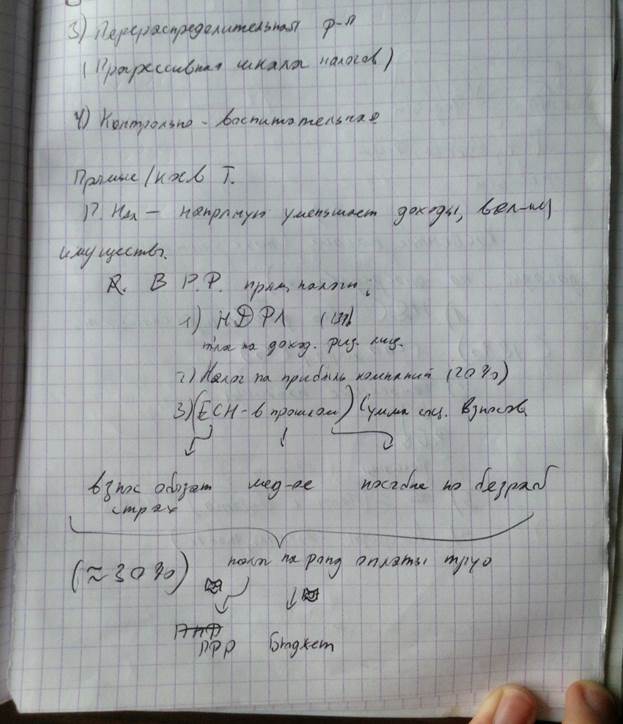 3) Перераспределительная ф-я
(Прогрессивная шкала налогов)
4) Контрольно - воспитательная
Прямые / косв Т.
П. Нал — напрямую уменьшает доходы, вел-ну
имуществ.
В Р.Ф. прям. налоги:
1) НДФЛ (13%)
на доход. физ. лиц.
2) Налог на прибыль компаний (20%)
3) (ЕСН - в прошлом) Сумма соц. взносов
взнос обязат мед-ое пособие по безраб
страх
(≈30%) налог на фонд оплаты труд
ПФР Бюджет